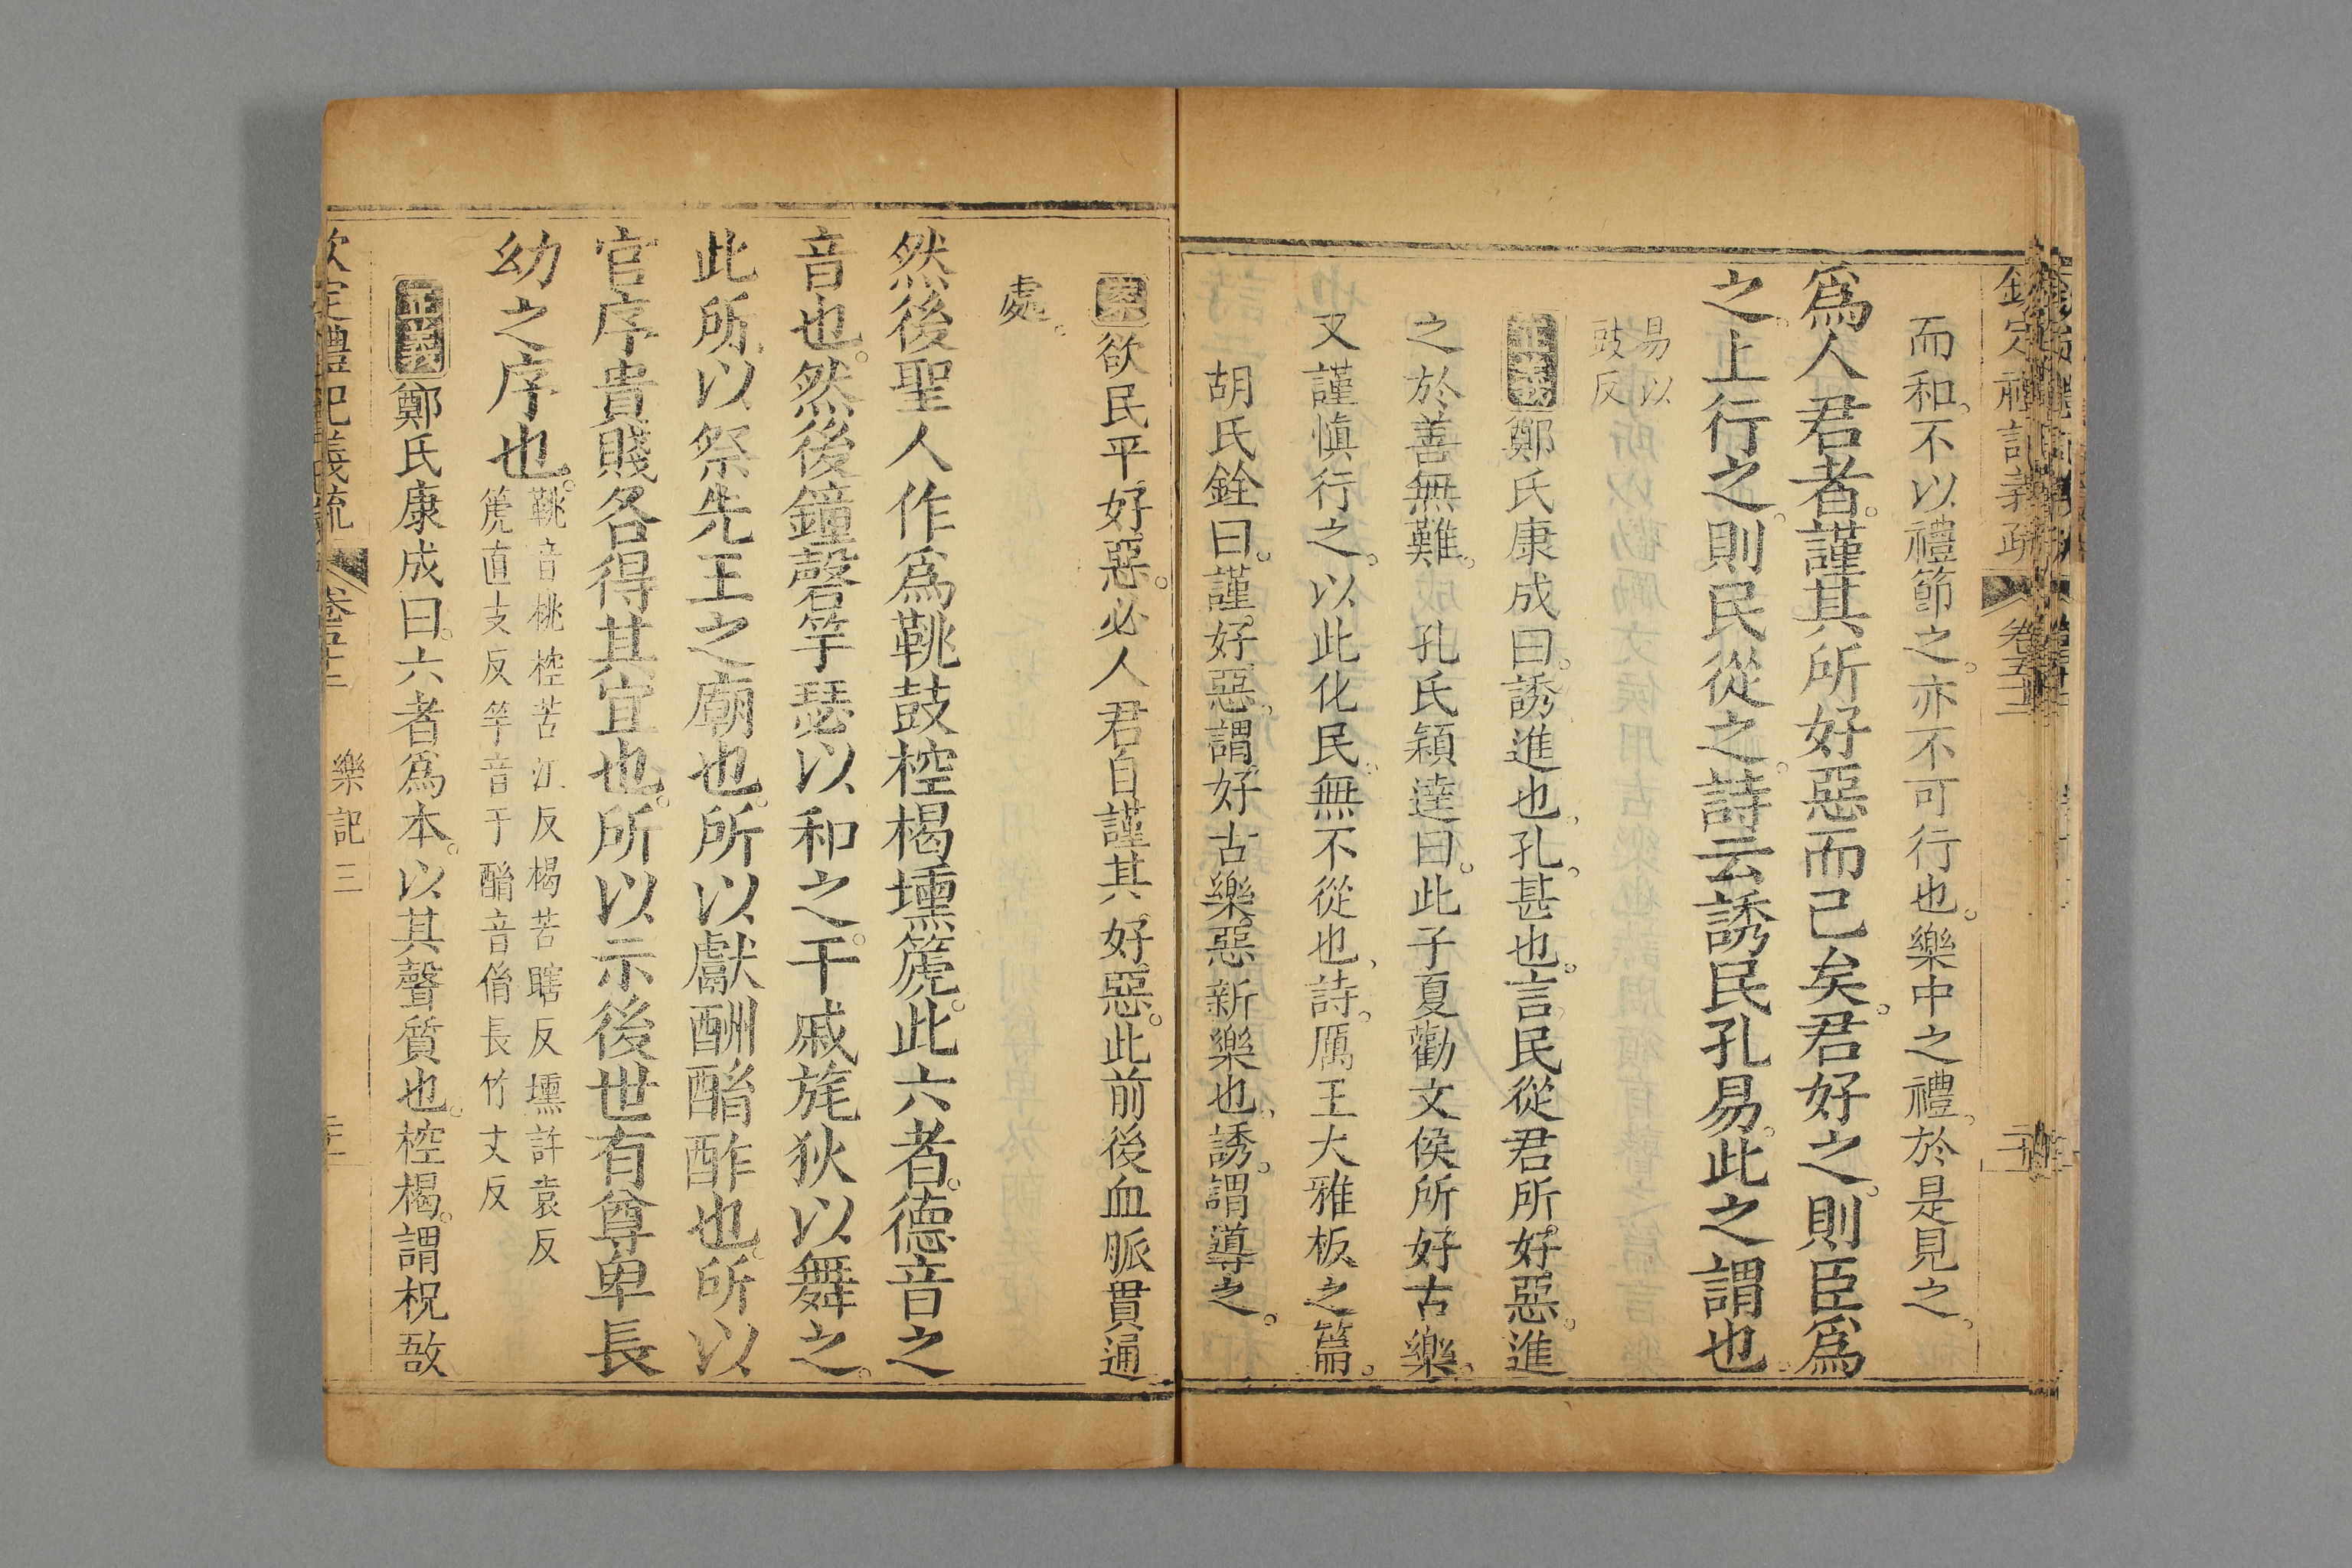 欽定禮記義疏 卷五十二
而和不以禮節之亦不可行也樂中之禮於是見之
爲人君者謹其所好惡而已矣君好之則臣爲
之上行之則民從之詩云誘民孔易此之謂也
易以
豉反
正義鄭氏康成曰誘進也孔甚也言民從君所好惡進
之於善無難 孔氏穎達曰此子夏勸文侯所好古樂
又謹愼行之以此化民無不從也詩厲王大雅板之篇
胡氏銓曰謹好惡謂好古樂惡新樂也誘謂導之
案欲民平好惡必人君自謹其好惡此前後血脈貫通
處
然後聖人作爲鞉鼓椌楬壎篪此六者德音之
音也然後鐘磬竽瑟以和之干戚旄狄以舞之
此所以祭先王之廟也所以獻酬酳酢也所以
官序貴賤各得其宜也所以示後世有尊卑長
幼之序也
鞉音桃椌苦江反楬苦瞎反壎許袁反
篪直支反竽音于酳音胤長竹丈反
正義鄭氏康成曰六者爲本以其聲質也椌楬謂柷敔
欽定禮記義疏 卷五十二 樂記三